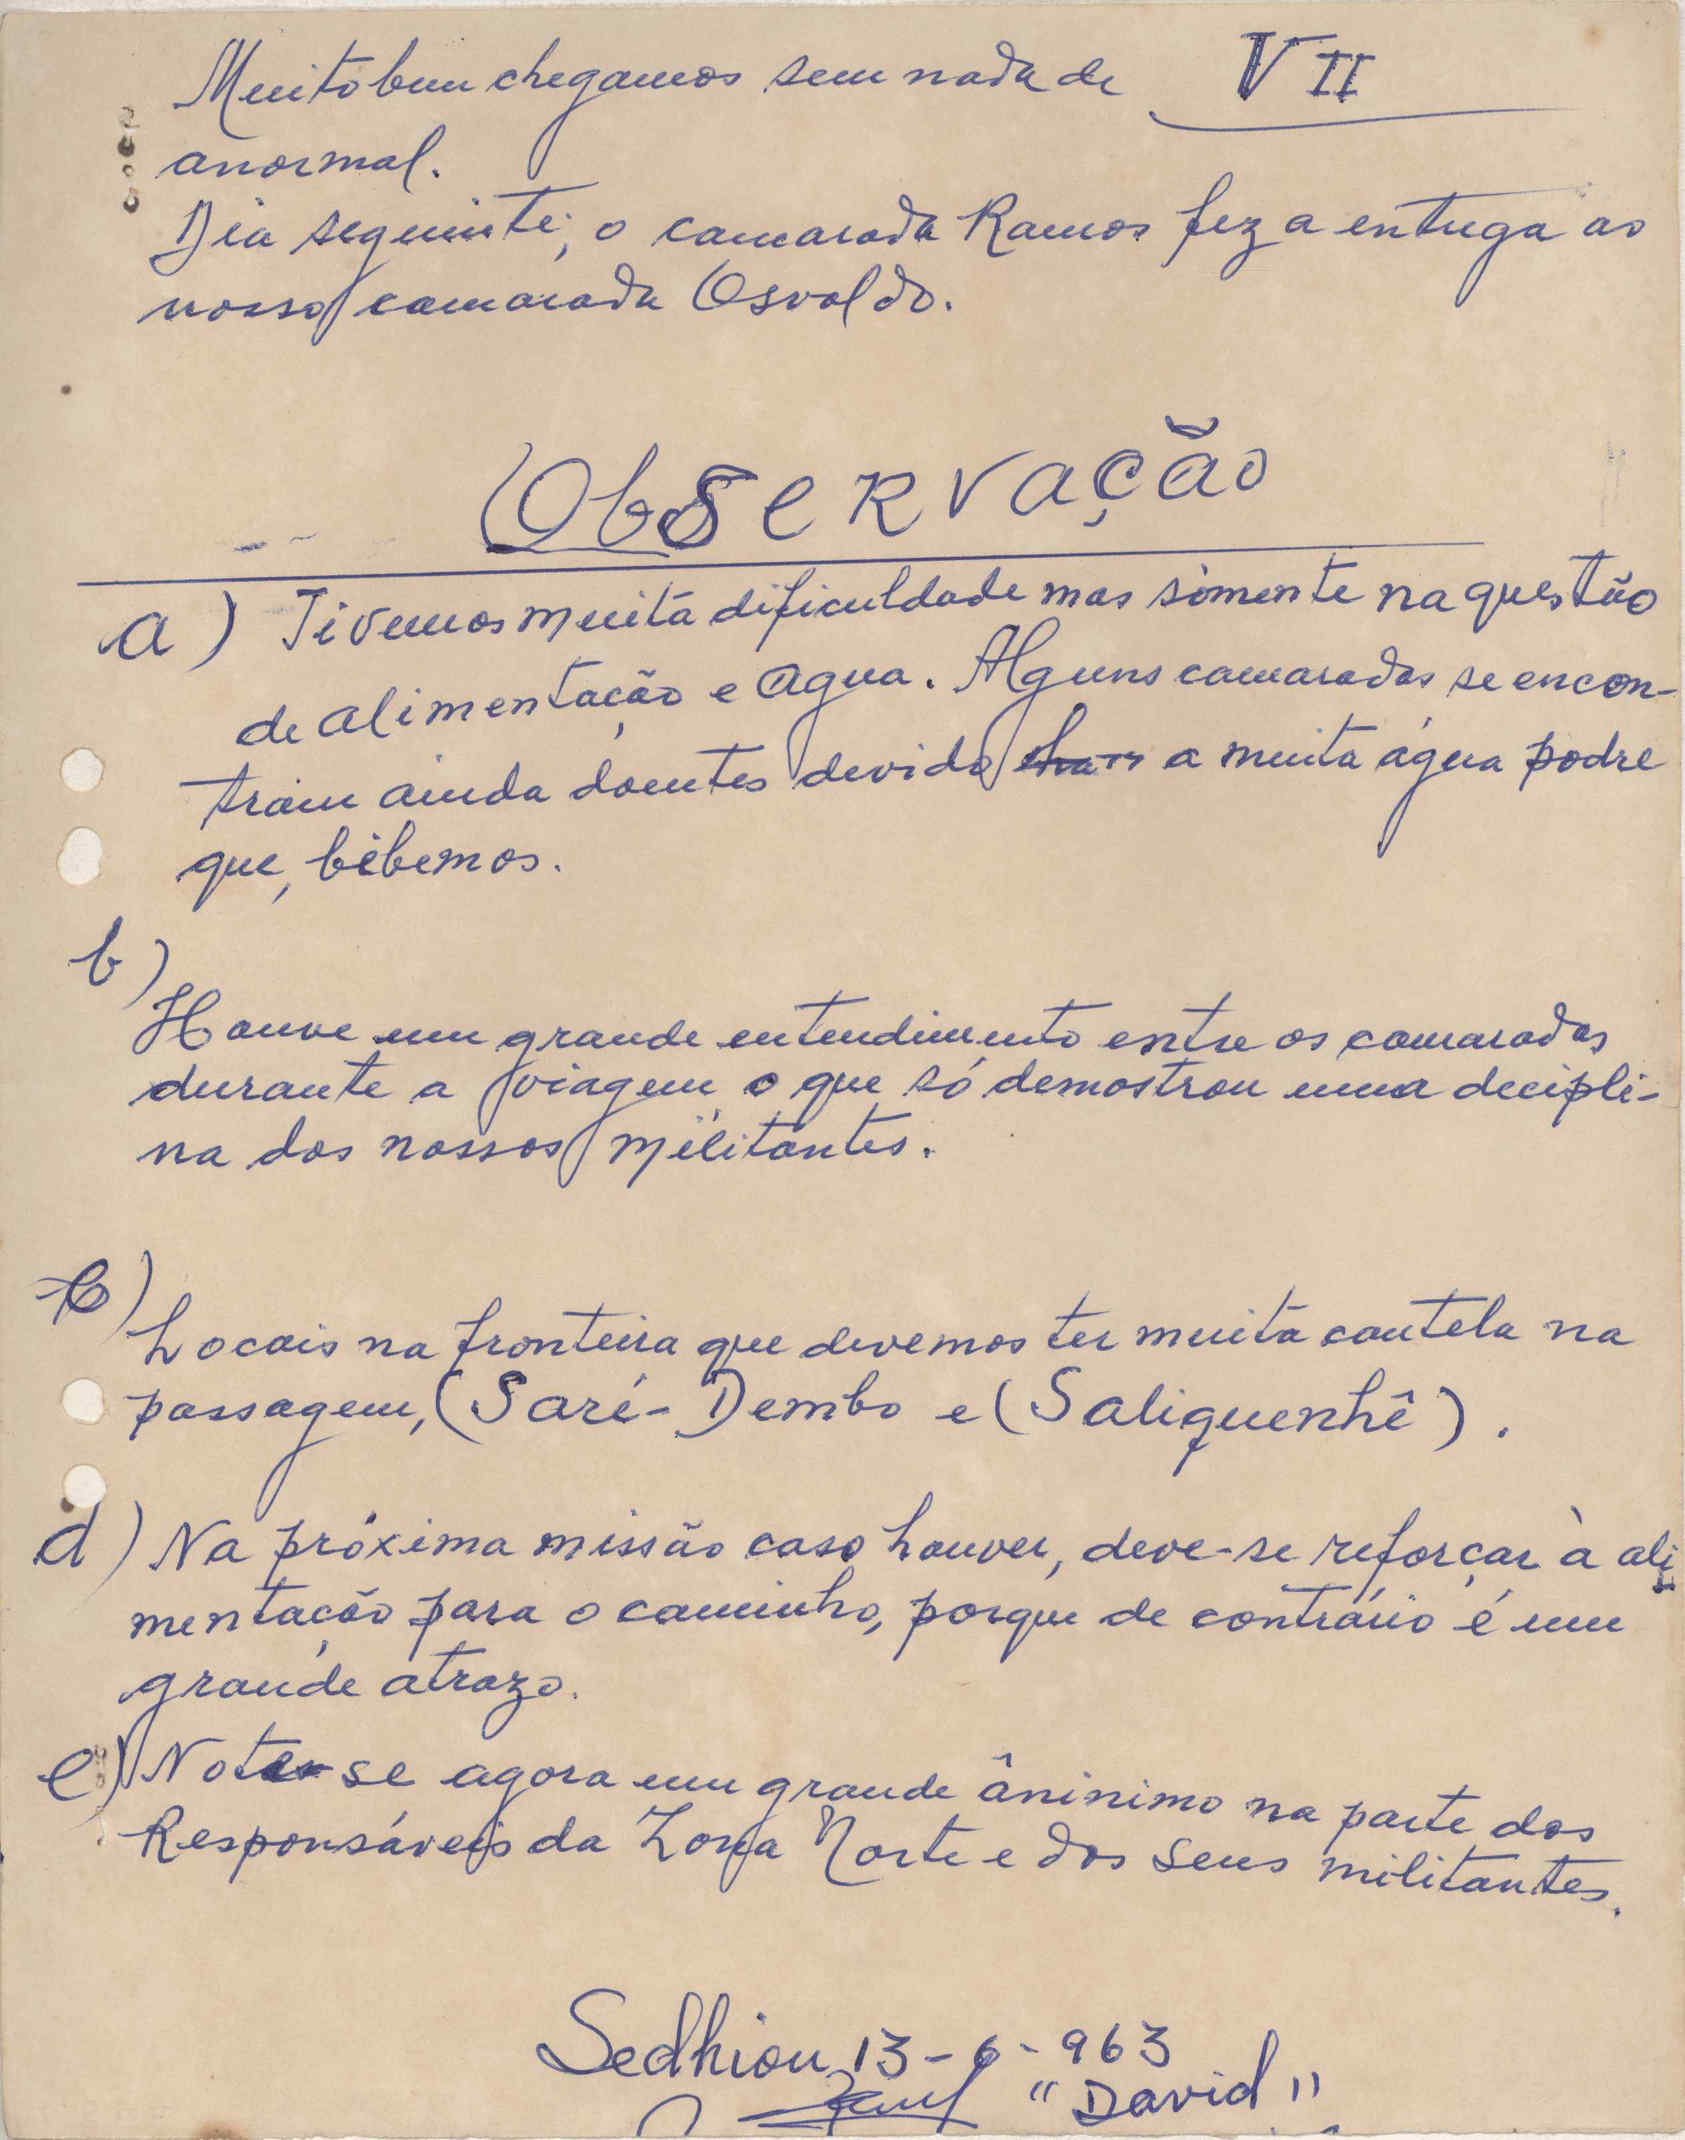 Muito bem chegamos sem nada de VII
anormal.
Dia seguinte, o camarada Ramos fez a entrega ao
nosso camarada Osvaldo.
Observação
a) Tivemos muita dificuldade mas sómente na questão
de alimentação e agua. Alguns camaradas se encon-
tram ainda doentes devido a muita água podre
que, bibemos.
b)
Houve um grande entendimento entre os camaradas
durante a viagem o que só demostrou uma decipli-
na dos nossos militantes.
c)
Locais na fronteira que devemos ter muita cautela na
passagem, (Saré-Dembo e (Saliquenhê).
d) Na próxima missão caso houver, deve-se reforçar à ali
mentação para o caminho, porque de contrário é um
grande atrazo.
e) Nota-se agora um grande âninimo na parte dos
Responsáveis da Zona Norte e dos seus militantes.
Sedhiou 13-6-963
"David"